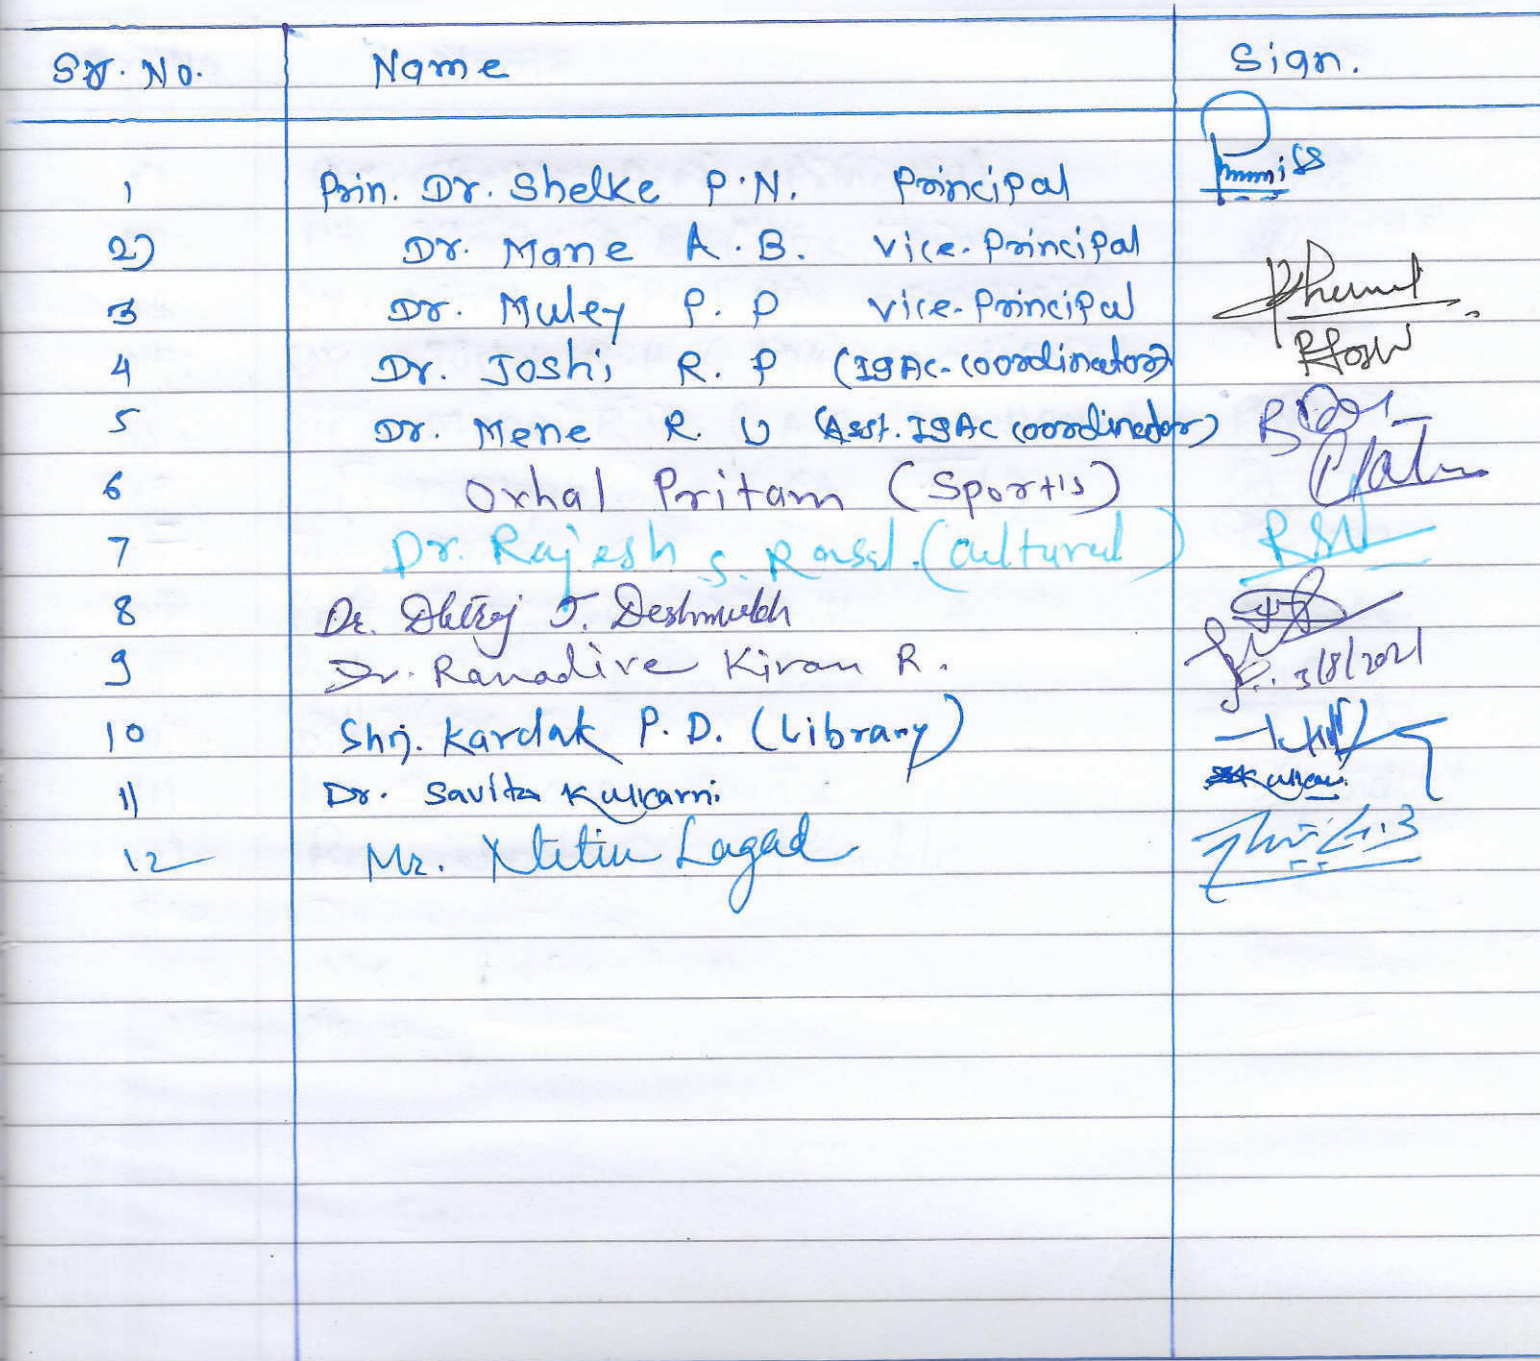 Sr. No. Name Sign.
1 Prin. Dr. Shelke P.N. Principal
2) Dr. Mane A.B. Vice-Principal
3 Dr. Muley P.P Vice-Principal
4 Dr. Joshi R.P (IQAC-Coordinator)
5 Dr. Mene R.U (Asst. IQAC Coordinator)
6 Oxhal Pritam (Sports)
7 Dr. Rajesh S. Rasal. (Cultural)
8 Dr. Dhiraj J. Deshmukh
9 Dr. Ranadive Kiran R. 3/8/2021
10 Shri. Kardak P.D. (Library)
11 Dr. Savita Kulkarni
12 Mr. Nitin Lagad